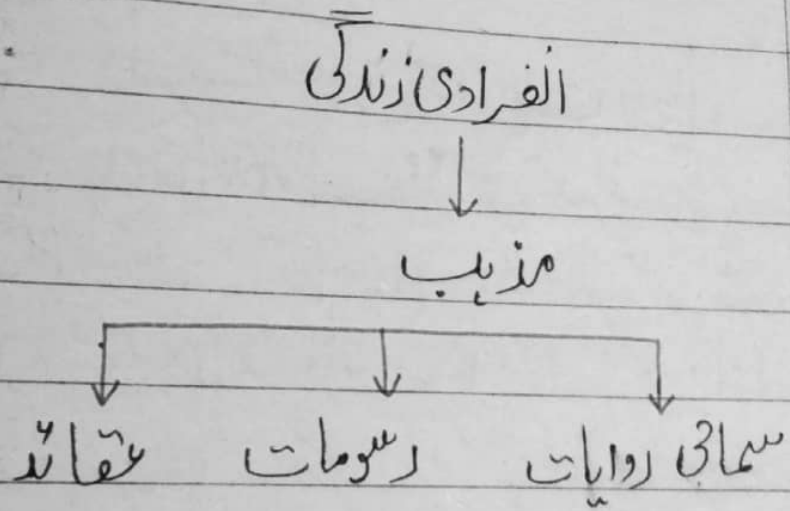 انفرادی زندگی
مذہب
سماجی روایات رسومات عقائد